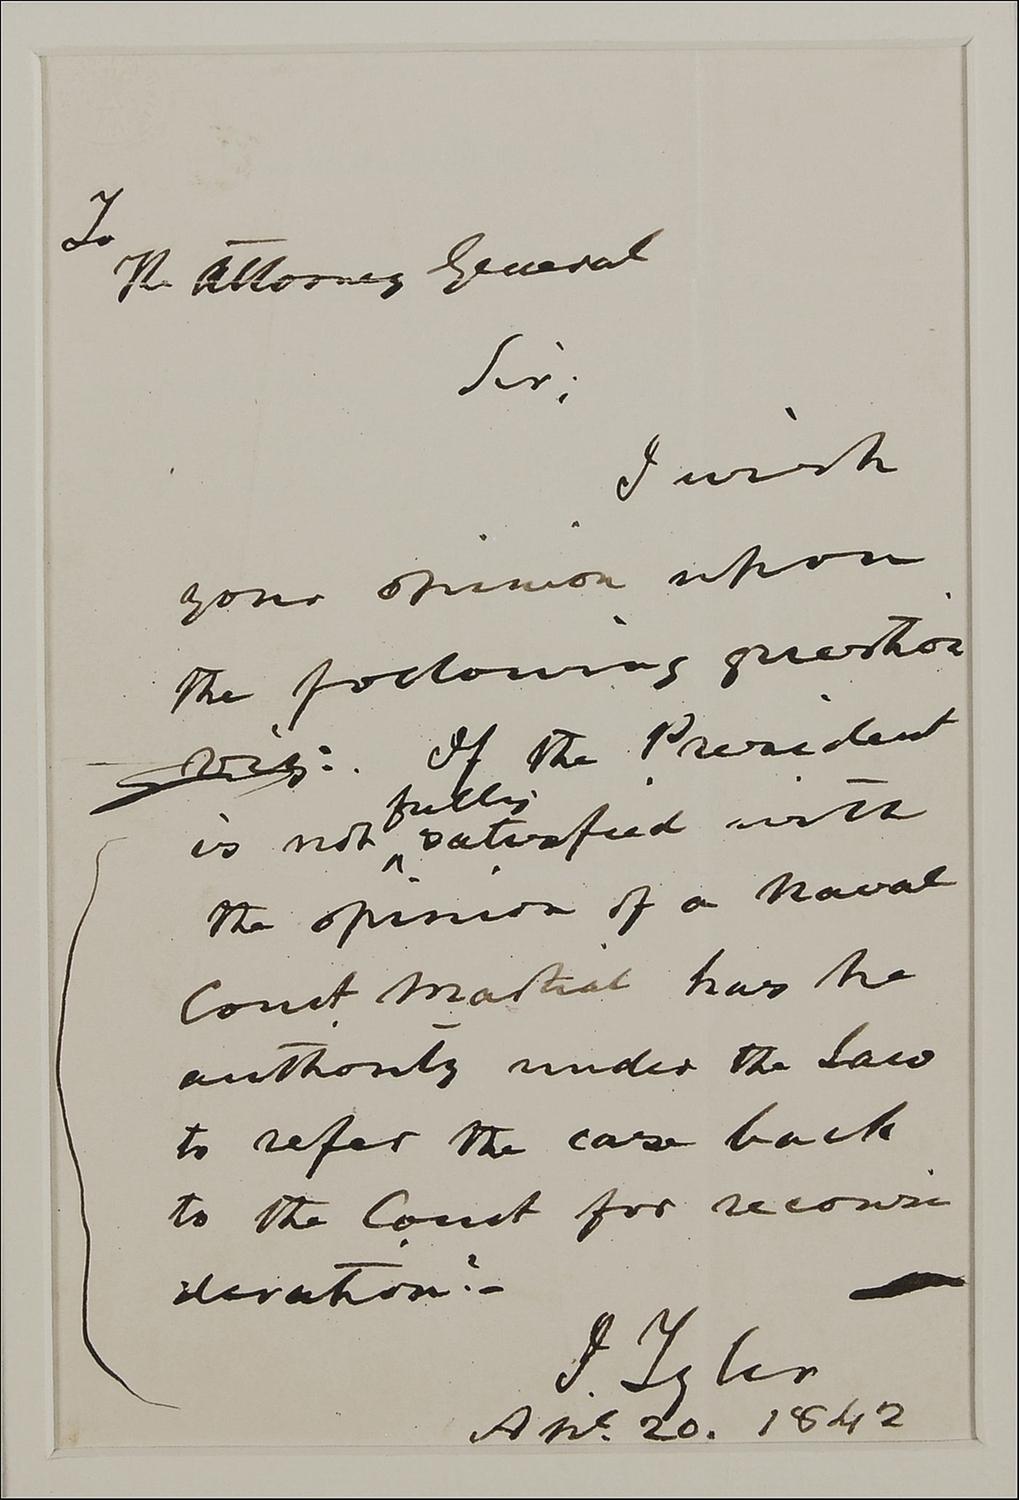 To
The Attorney General
Sir;
I wish
your opinion upon
the following question
viz:. If the President
is not ^ fully satisfied with
the opinion of a Naval
Court Martial has he
authority under the Law
to refer the case back
to the Court for reconsi
deration?-
J. Tyler
Apl. 20. 1842